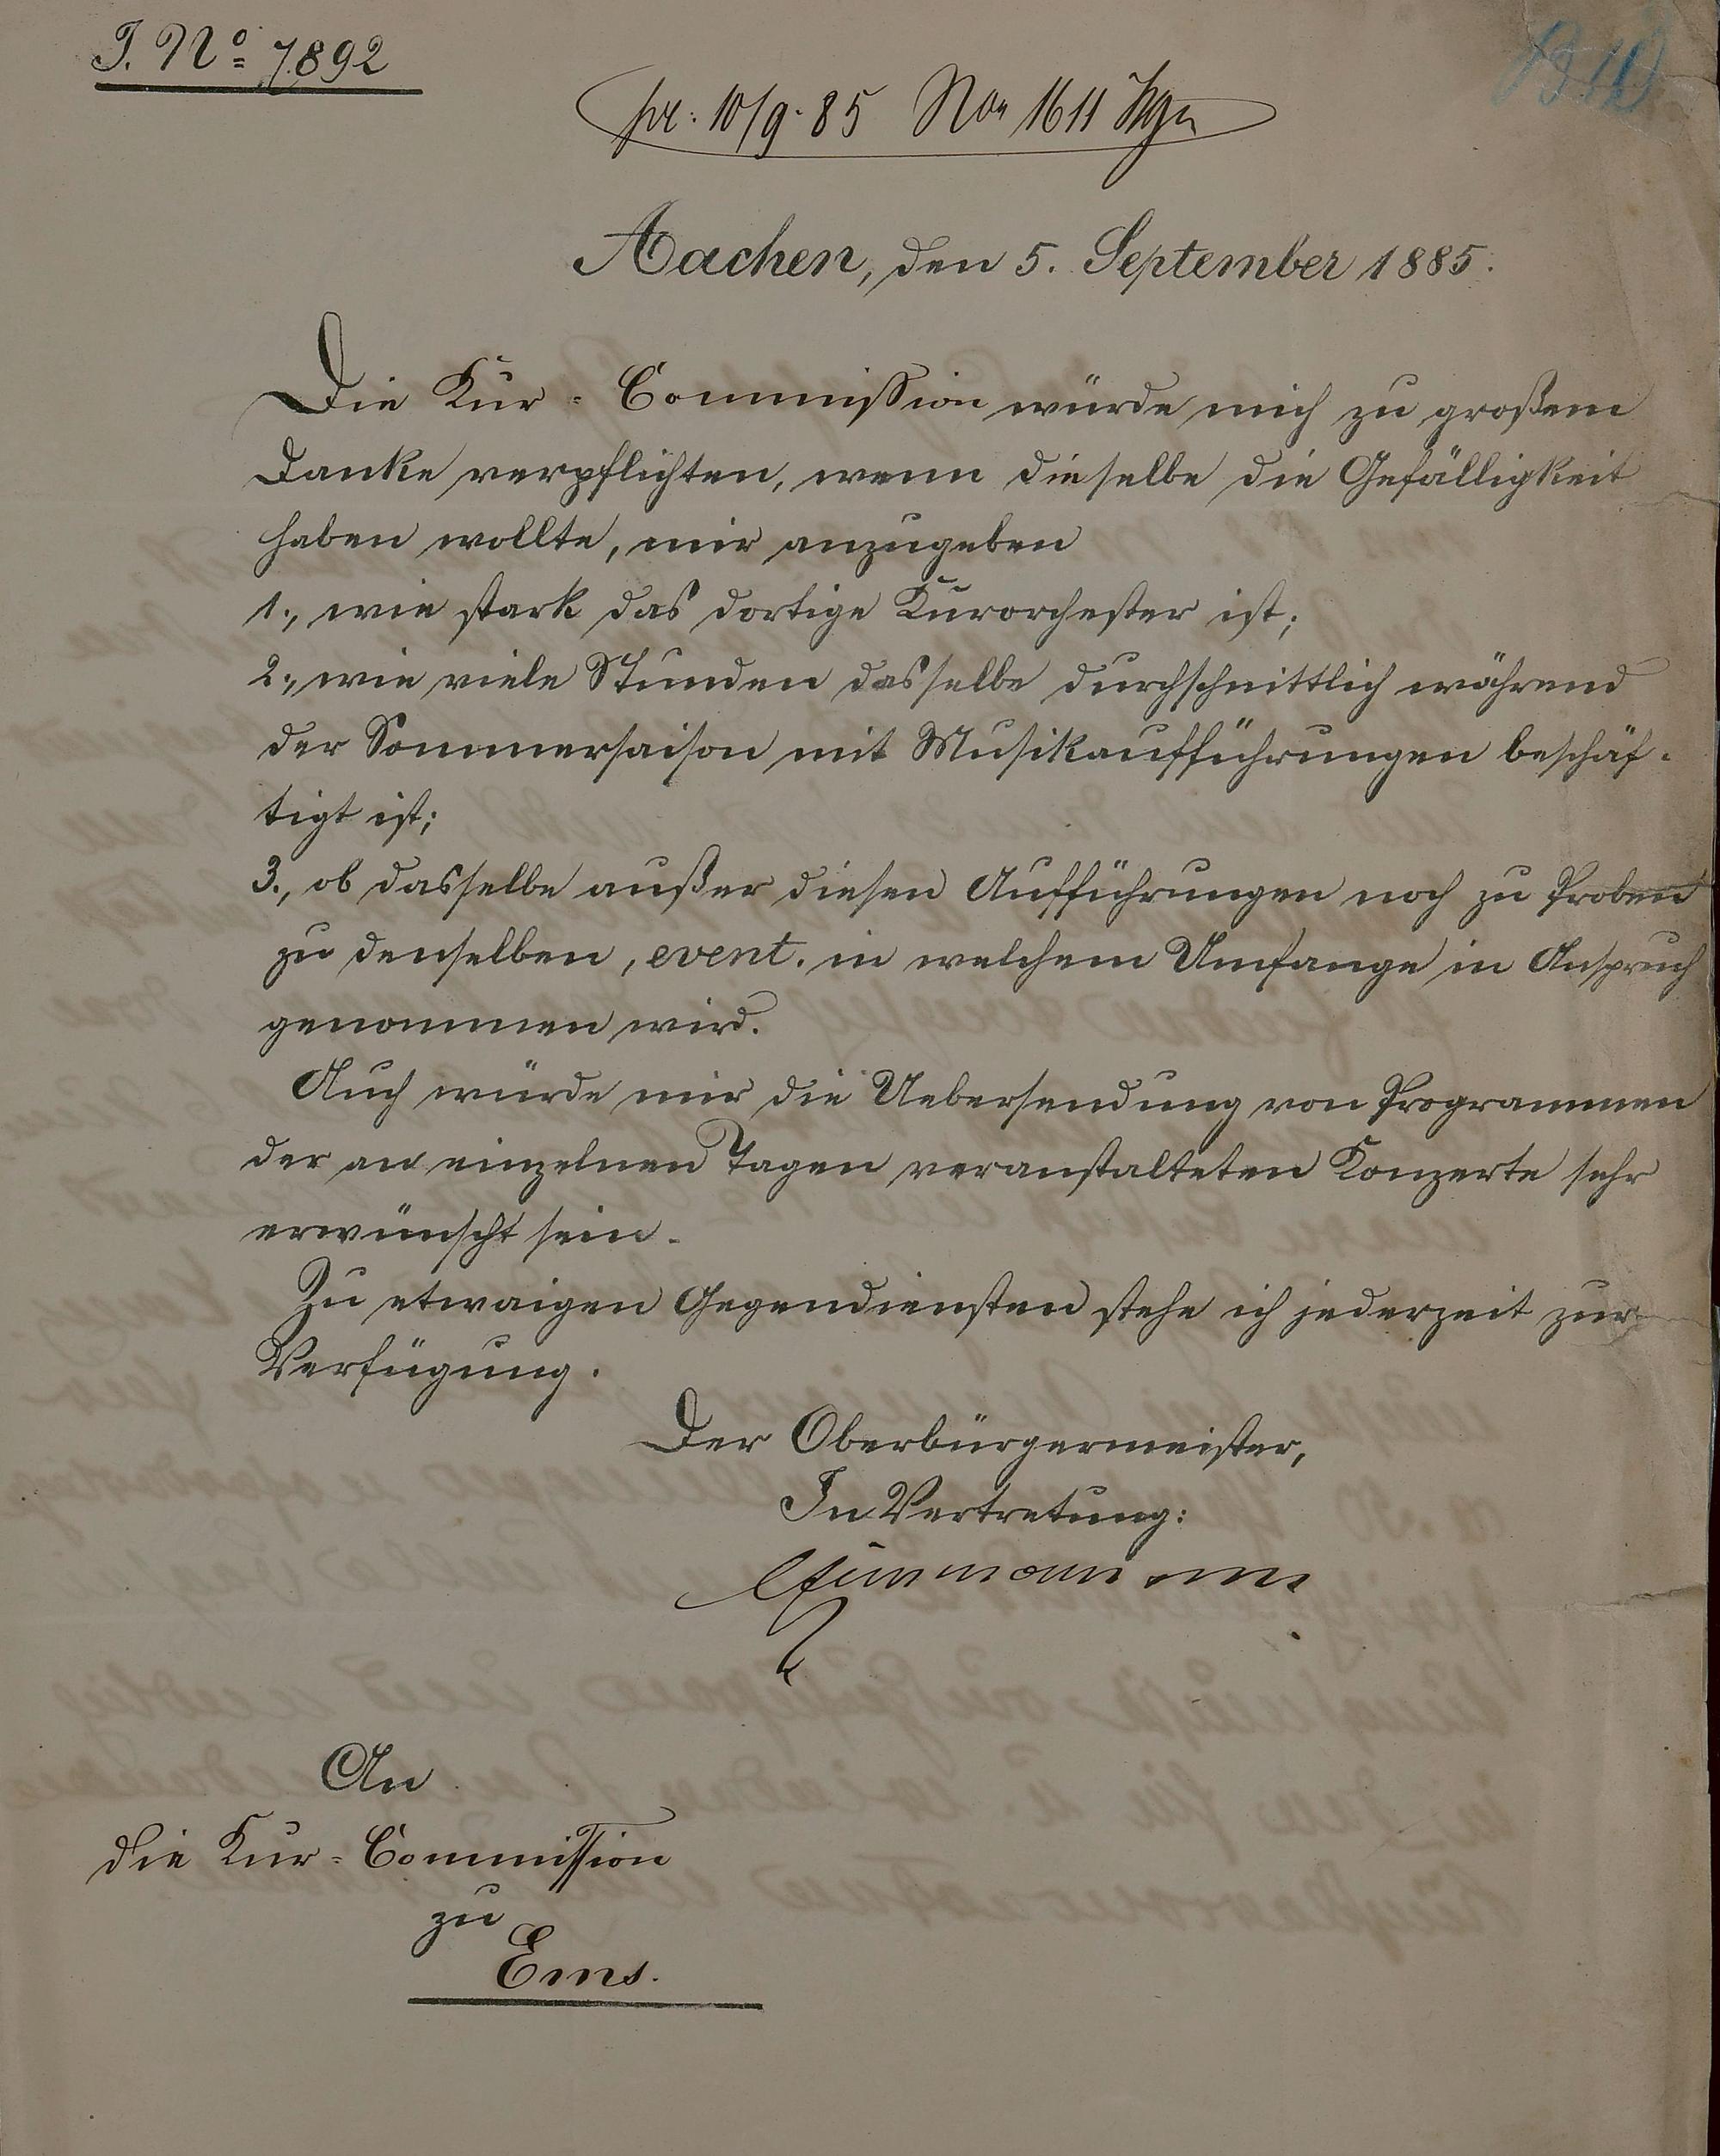 J. No. 7892
pr. 10/9. 85 No. 1611
Aachen, den 5. September 1885.
Die Kur-Commission würde mich zu großem
Danke verpflichten, wenn dieselbe die Gefälligkeit
haben wollte, mir anzugeben
1., wie stark das dortige Kurorchester ist;
2., wie viele Stunden dasselbe durchschnittlich während
der Sommersaison mit Musikaufführungen beschäf-
tigt ist;
3., ob dasselbe außer diesen Aufführungen noch zu Proben
zu denselben, event. in welchem Umfange in Anspruch
genommen wird.
Auch würde mir die Uebersendung von Programmen
der an einzelnen Tagen veranstalteten Konzerte sehr
erwünscht sein.
Zu etwaigen Gegendiensten stehe ich jederzeit zur
Verfügung.
Der Oberbürgermeister,
In Vertretung:
An
die Kur-Commission
zu
Ems.